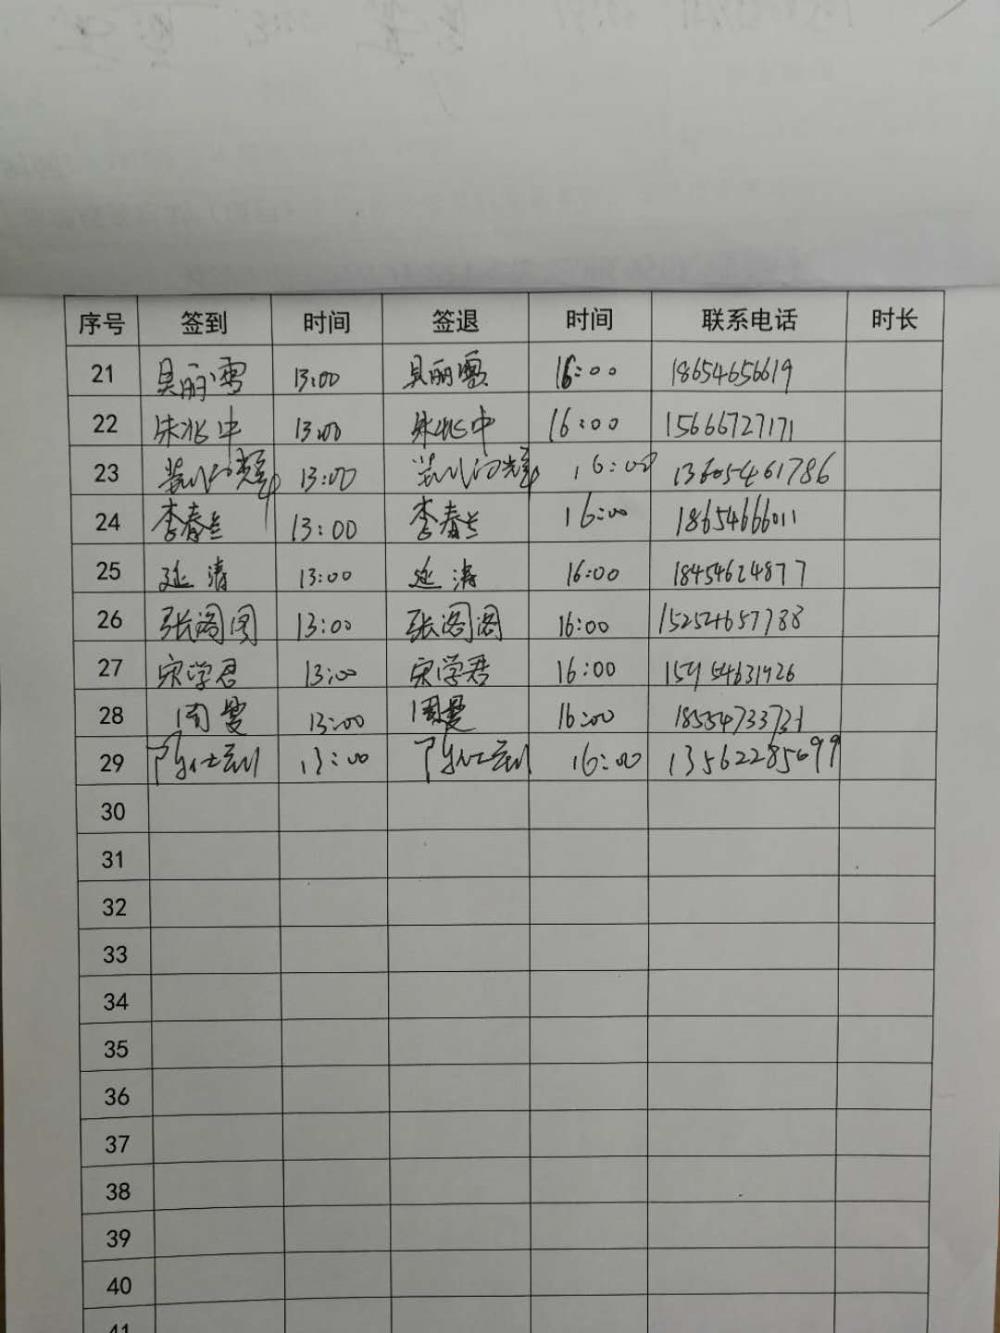 序号 签到 时间 签退 时间 联系电话 时长
21 吴丽雪 13:00 吴丽雪 16:00 18654656619
22 朱兆中 13:00 朱兆中 16:00 15666727171
23 13:00 16:00 13605461786
24 李春兰 13:00 李春兰 16:00 18654666011
25 延涛 13:00 延涛 16:00 18454624877
26 张阁阁 13:00 张阁阁 16:00 15254657788
27 宋学君 13:00 宋学君 16:00 15954631926
28 周曼 13:00 周曼 16:00 18554733731
29 13:00 16:00 13562285699
30
31
32
33
34
35
36
37
38
39
40
41